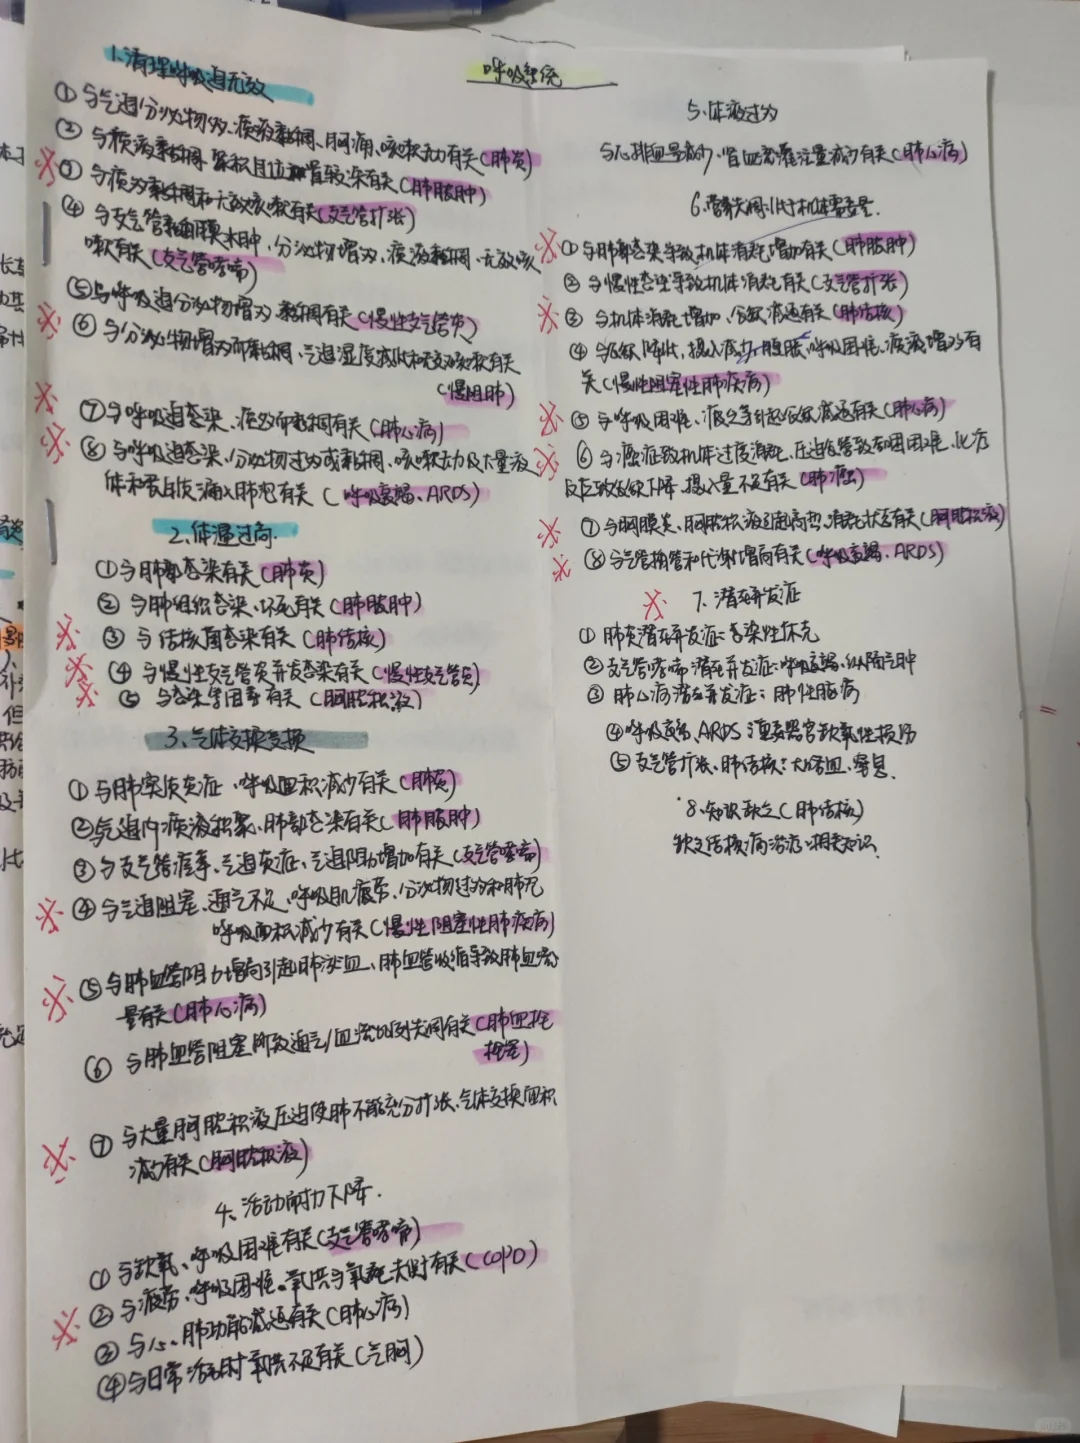 呼吸系统
1.清理呼吸道无效
①与气道分泌物多、痰液黏稠、胸痛、咳嗽无力有关(肺炎)
②与痰液黏稠、累积且位置较深有关(肺脓肿)
③与痰多黏稠和无效咳嗽有关(支气管扩张)
④与支气管黏膜水肿,分泌物增多、痰液黏稠、无效咳
嗽有关(支气管哮喘)
⑤与呼吸道分泌物增多、黏稠有关(慢性支气管炎)
⑥与分泌物增多而黏稠、气道湿度减低和无效咳嗽有关
(慢阻肺)
⑦与呼吸道感染、痰多而黏稠有关(肺心病)
⑧与呼吸道感染、分泌物过多或黏稠、咳嗽无力及大量液
体和蛋白质漏入肺泡有关(呼吸衰竭、ARDS)
2.体温过高.
①与肺部感染有关(肺炎)
②与肺组织感染、坏死有关(肺脓肿)
③与结核菌感染有关(肺结核)
④与慢性支气管炎并发感染有关(慢性支气管炎)
⑤与感染等因素有关(胸腔积液)
3.气体交换受损
①与肺实质炎症、呼吸面积减少有关(肺炎)
②气道内痰液积聚、肺部感染有关(肺脓肿)
③与支气管痉挛、气道炎症、气道阻力增加有关(支气管哮喘)
④与气道阻塞、通气不足、呼吸肌疲劳、分泌物过多和肺泡
呼吸面积减少有关(慢性阻塞性肺疾病)
⑤与肺血管阻力增高引起肺淤血、肺血管收缩导致肺血流
量有关(肺心病)
⑥与肺血管阻塞所致通气/血流比例失调有关(肺血栓
栓塞)
⑦与大量胸腔积液压迫使肺不能充分扩张、气体交换面积
减少有关(胸腔积液)
4、活动耐力下降.
①与缺氧、呼吸困难有关(支气管哮喘)
②与疲劳、呼吸困难、氧供与氧耗失衡有关(COPD)
③与心、肺功能减退有关(肺心病)
④与日常活动时氧供不足有关(气胸)
5、体液过多
与心排血量减少、肾血流灌注量减少有关(肺心病)
6.营养失调:低于机体需要量.
①与肺部感染导致机体消耗增加有关(肺脓肿)
②与慢性感染导致机体消耗有关(支气管扩张)
③与机体消耗增加、食欲减退有关(肺结核)
④与食欲降低、摄入减少、腹胀、呼吸困难、痰液增多有
关(慢性阻塞性肺疾病)
⑤与呼吸困难、疲乏等引起食欲减退有关(肺心病)
⑥与癌症致机体过度消耗、压迫食管致吞咽困难、化疗
反应致食欲下降、摄入量不足有关(肺癌)
⑦与胸膜炎、胸腔积液引起高热、消耗状态有关(胸腔积液)
⑧与气管插管和代谢增高有关(呼吸衰竭、ARDS)
7.潜在并发症
①肺炎潜在并发症:感染性休克
②支气管哮喘潜在并发症:呼吸衰竭、纵隔气肿
③肺心病潜在并发症:肺性脑病
④呼吸衰竭、ARDS:重要器官缺氧性损伤
⑤支气管扩张、肺结核:大咯血、窒息.
8.知识缺乏(肺结核)
缺乏结核病治疗相关知识.